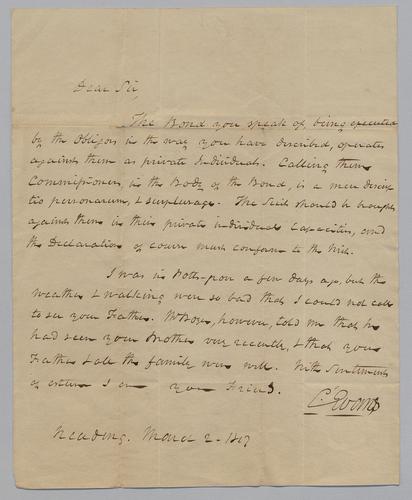 Dear Sir,
The Bond you speak of, being executed
by the Obligors in the way you have described, operates
against them as private Individuals. Calling them
Commissioners, in the Body of the Bond, is a mere descrip
tio personarum, & surplusage. The Suit should be brought
against them in their private individual Capacities, and
the Declaration of course must conform to the Writ.
I was in Potts-Grove a few days ago, but the
weather & walking were so bad that I could not call
to see your Father. however, told me that he
had seen your Brother very recently, & that your
Father & all the family were well. With Sentiments
of esteem I am your Friend.
C. Evans
Reading. March 2